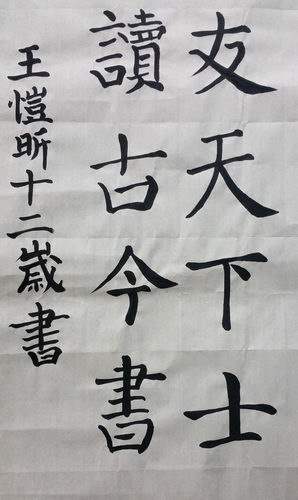 友天下士
讀古今書
王愷昕十二歲書